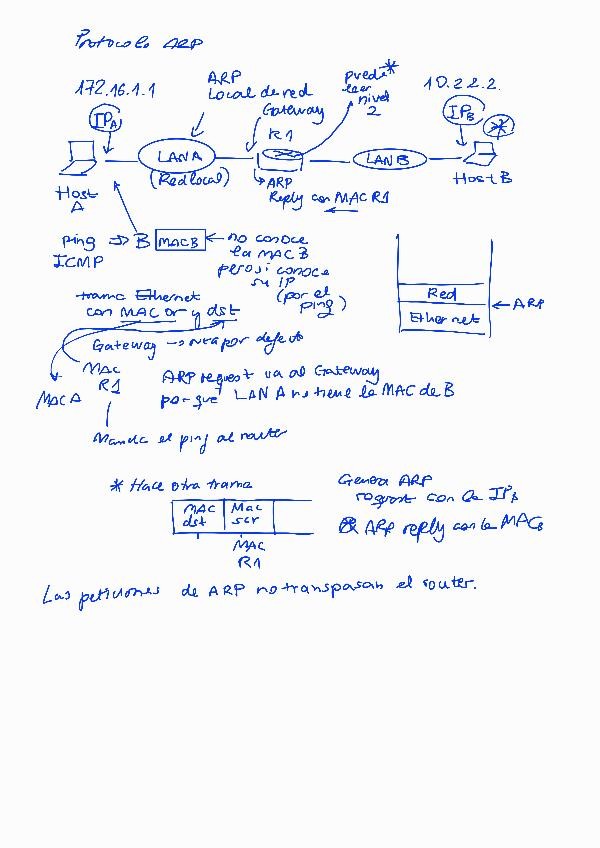 Protocolo ARP
172.16.1.1
ARP
Local de red
Gateway
R1
puede*
leer
nivel
2
10.2.2.2.
IPA
IPB
*
LAN A
(Red local)
LAN B
Host
A
ARP
Reply con MAC R1
Host B
ping => B MAC B
ICMP
no conoce
la MAC B
pero si conoce
su IP
(por el
ping)
Red
Ethernet
ARP
trama Ethernet
con MAC or y dst
Gateway -> ruta por defecto
MAC A
MAC
R1
ARP request va al Gateway
porque LAN A no tiene la MAC de B
Manda el ping al router
* Hace otra trama
MAC
dst
Mac
scr
MAC
R1
Genera ARP
request con la IPB
ARP reply con la MACB
Las peticiones de ARP no transpasan el router.